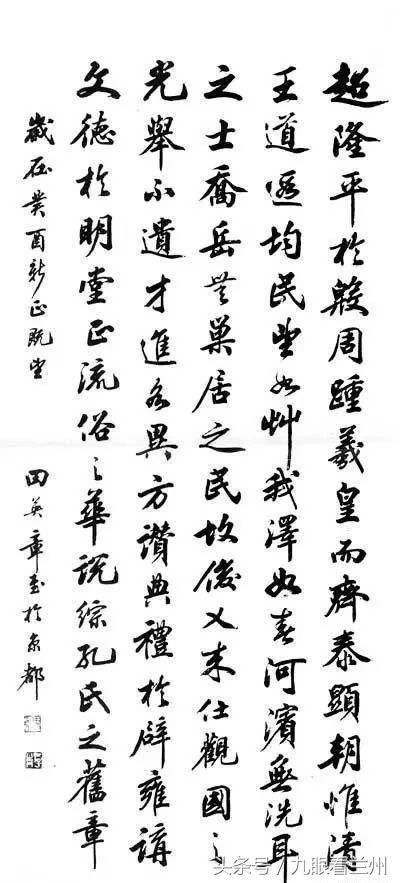 超隆平於殷周踵羲皇而齊泰顯朝惟清
王道遐均民望如艸我澤如春河濱無洗耳
之士喬岳無巢居之民故俊乂来仕觀國之
光舉不遺才進各異方讚典禮於辟雍講
文德於明堂正流俗之華說綜孔氏之舊章
歲在癸酉新正既望 田英章書於京都
头条号/九眼看兰州